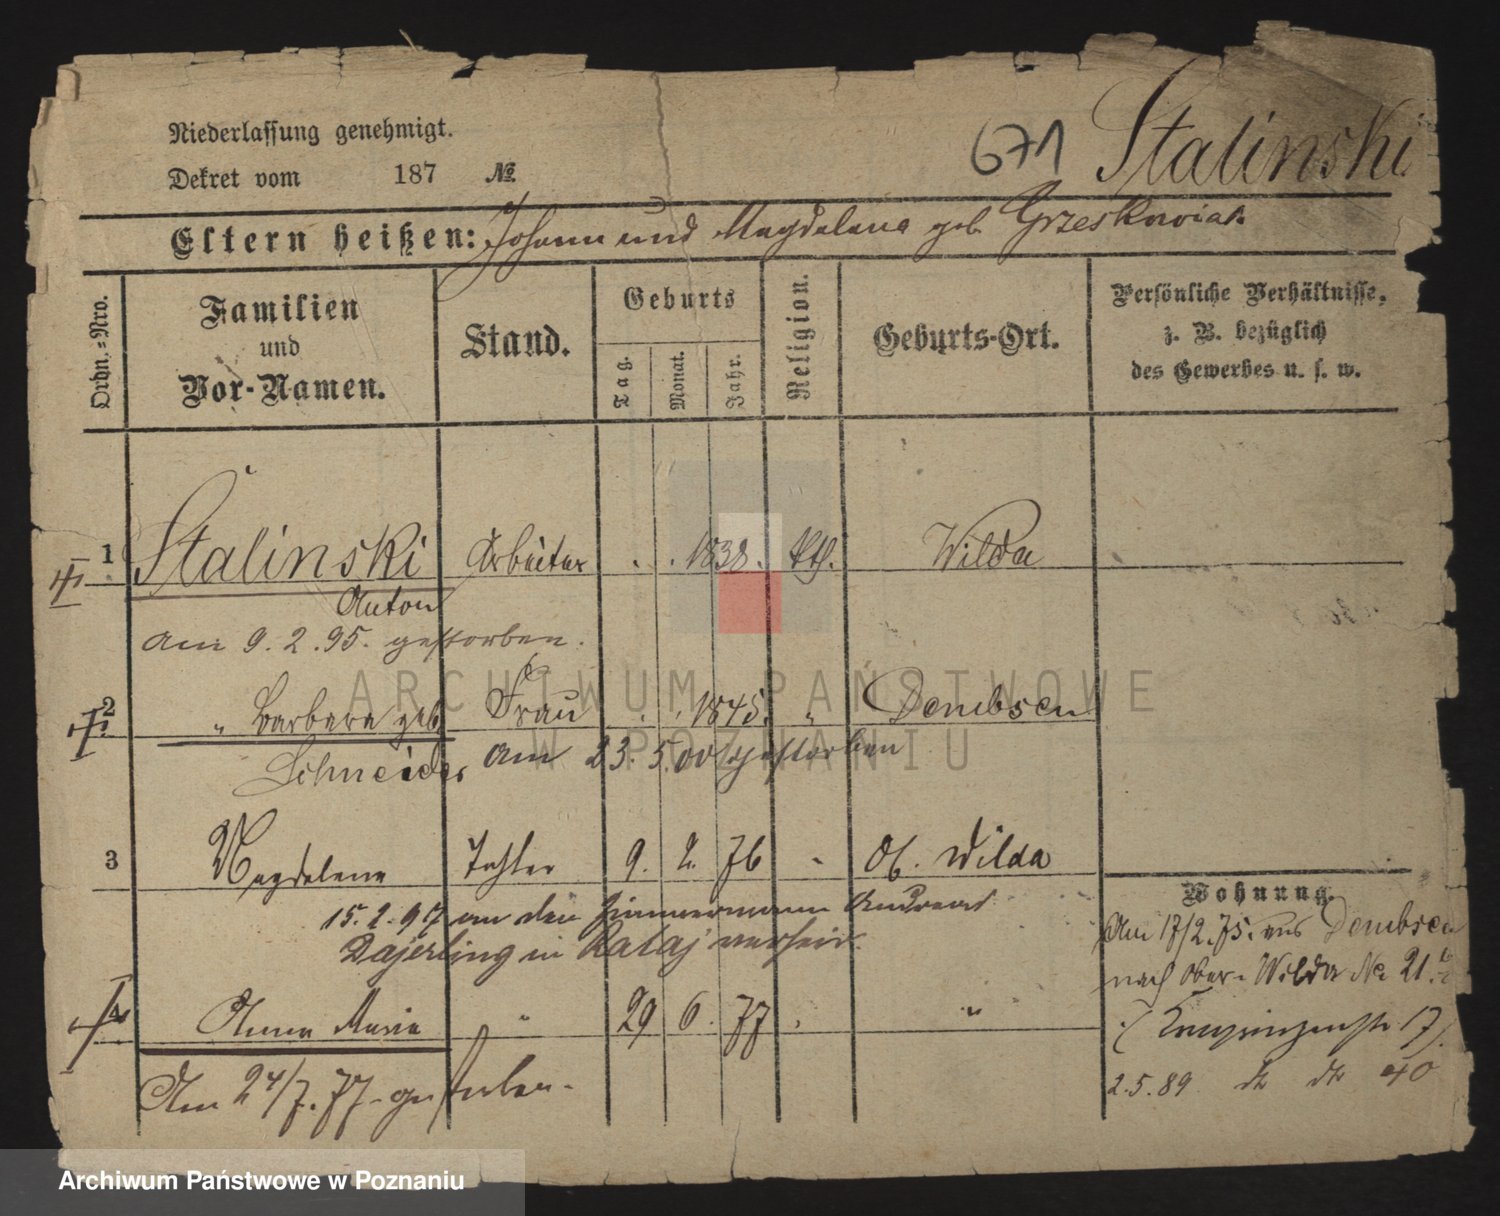 Niederlassung genehmigt.
Dekret vom 187 №.
671 Stalinski
Eltern heißen: Johann und Magdalena geb. Grzeskowiak
Ordn.=Nro.
Familien
und
Vor-Namen.
Stand.
Geburts
Tag.
Monat.
Jahr.
Religion.
Geburts-Ort.
Persönliche Verhältnisse,
z. B. bezüglich
des Gewerbes u. s. w.
1 Stalinski Arbeiter . . 1838. kth. Wilda
Anton
am 9. 2. 95. gestorben.
2 „ Barbara geb. Frau . . 1845. „ Dembsen
Schneider am 23. 5. 00 gestorben
3 Magdalena Tochter 9. 2. 76 „ Ob. Wilda
15. 2. 97 an den Zimmermann Andreas
Dajerling in Rataj verheir.
4 Anna Maria „ 29 6. 77 „ „
Am 24/7. 77 gestorben.
Wohnung.
Am 17/2. 75. aus Dembsen
nach Ober-Wilda No 21.
(Kronprinzenstr 17)
2. 5. 89 dto dto 40
ARCHIWUM PAŃSTWOWE
W POZNANIU
Archiwum Państwowe w Poznaniu